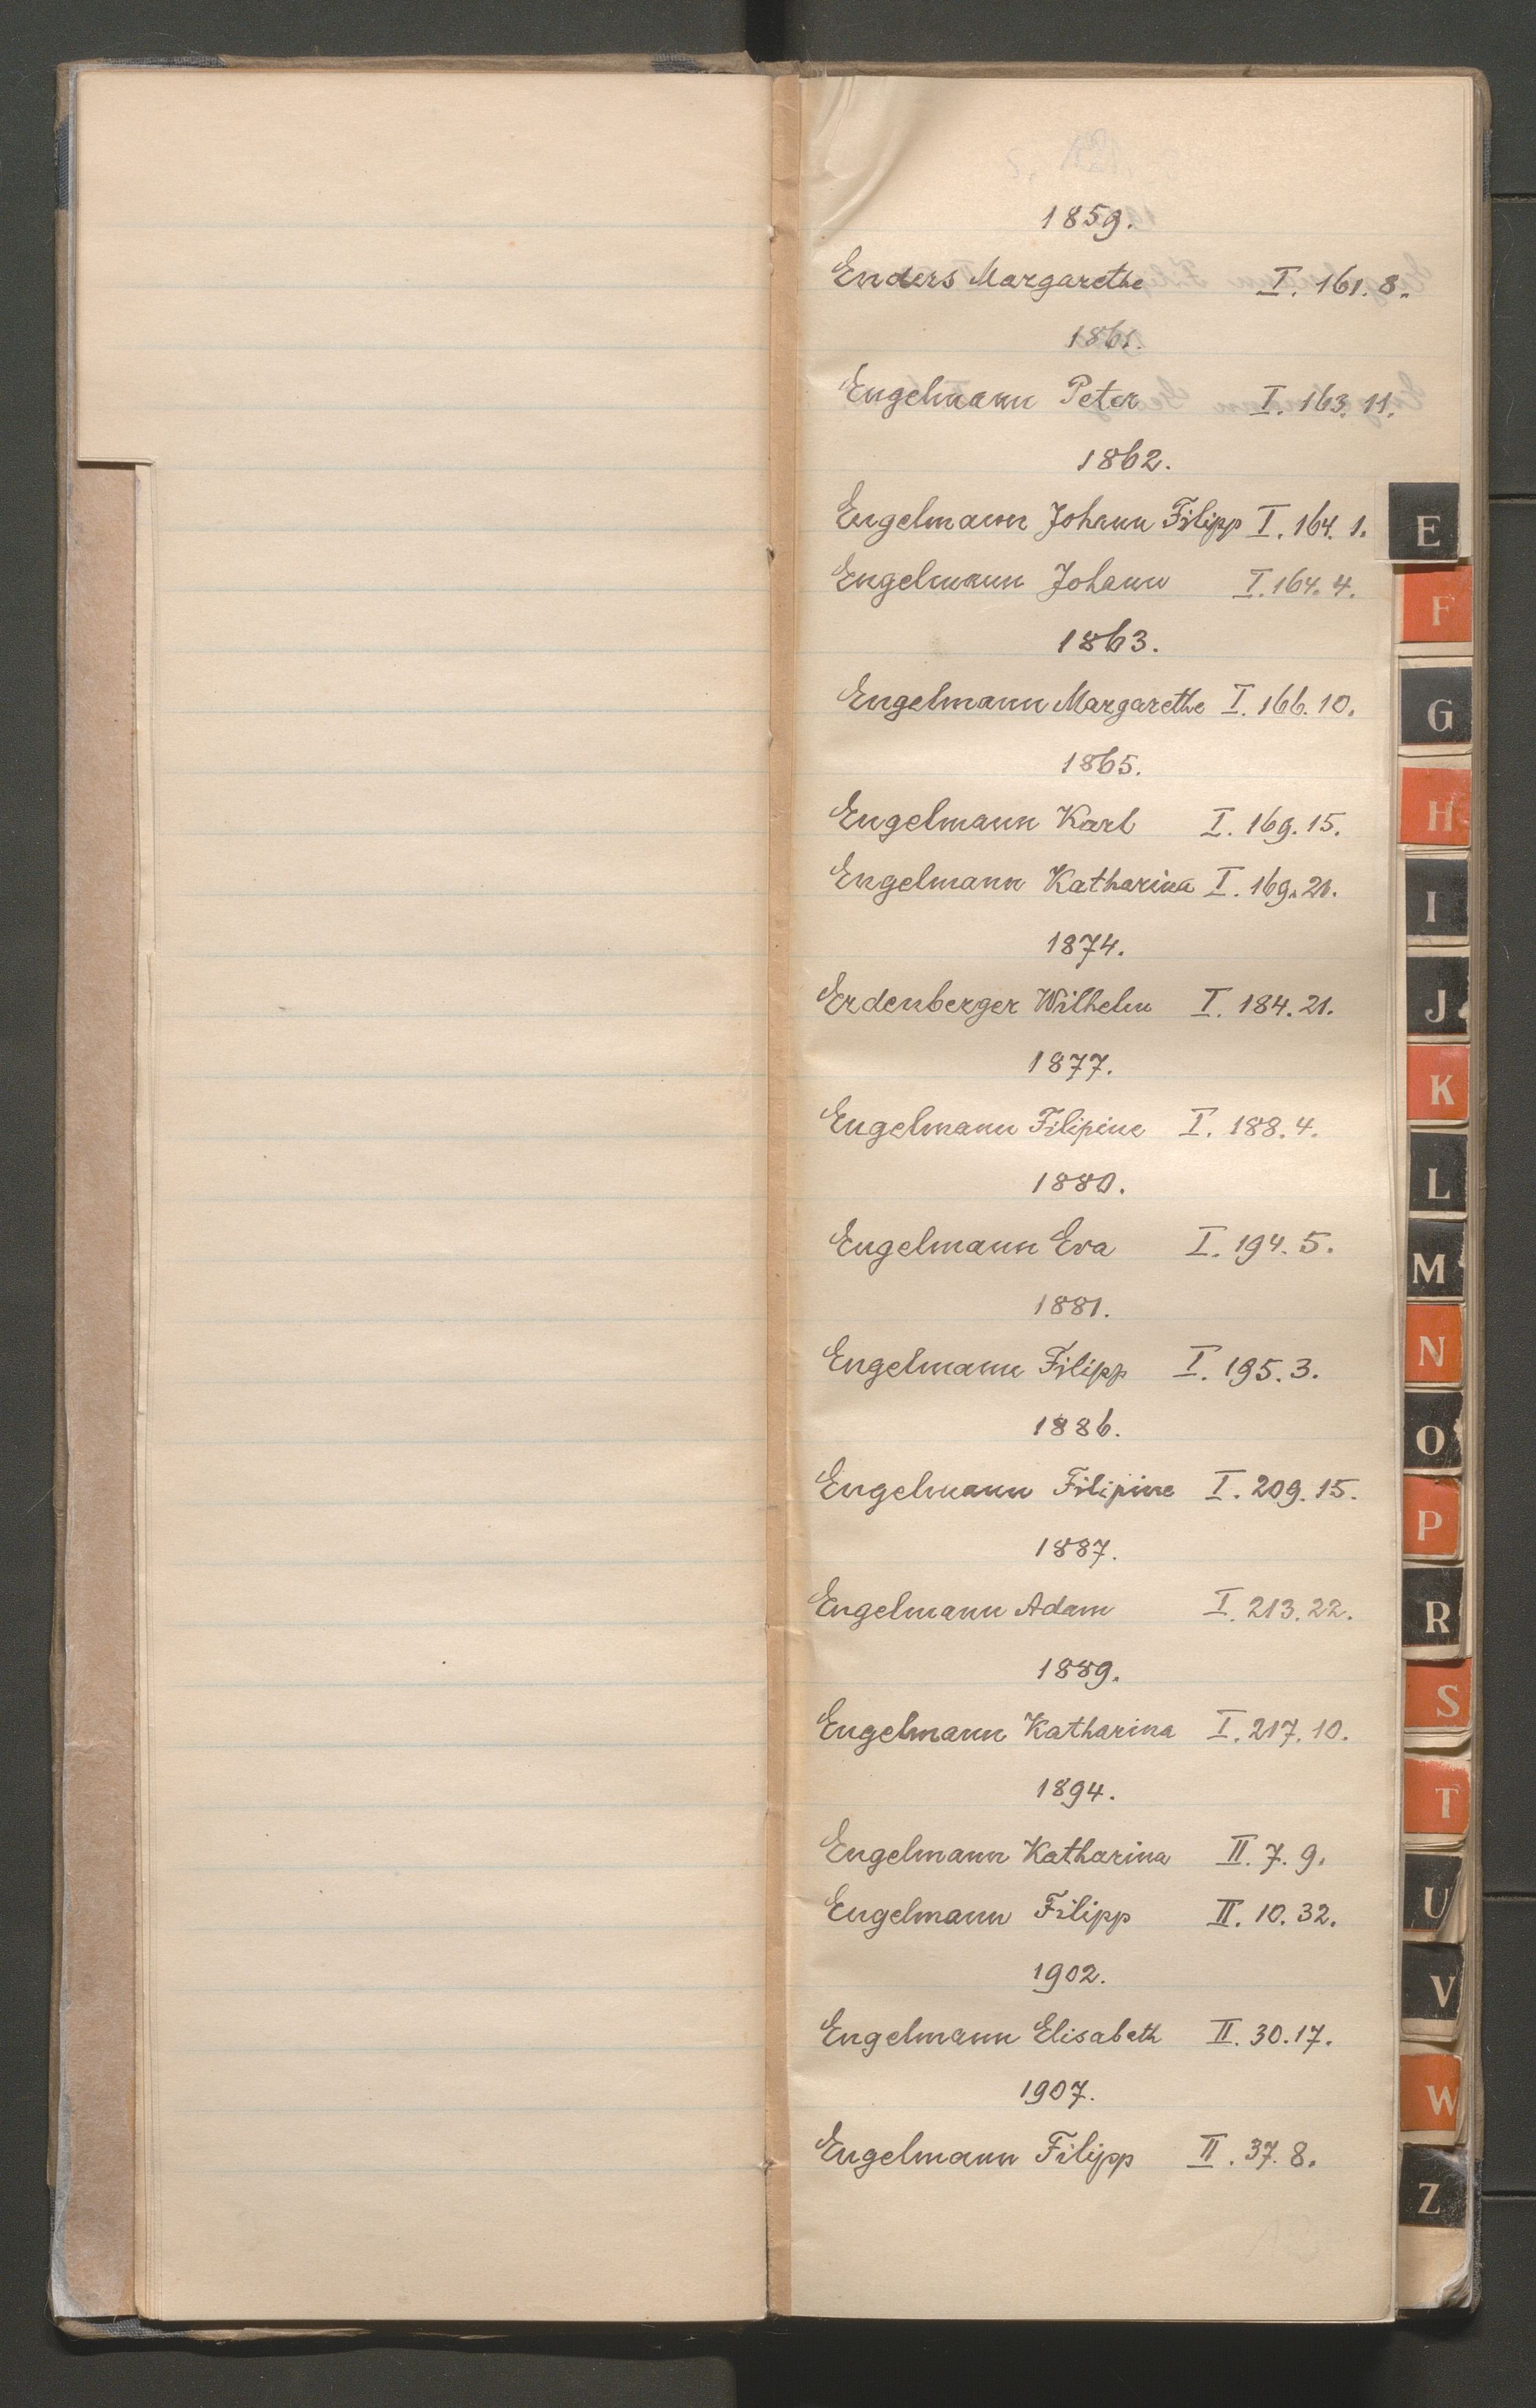 1859.
Enders Margarethe I. 161. 8.
1861.
Engelmann Peter I. 163. 11.
1862.
Engelmann Johann Filipp I. 164. 1.
Engelmann Johann I. 164. 4.
1863.
Engelmann Margarethe I. 166. 10.
1865.
Engelmann Karl I. 169. 15.
Engelmann Katharina I. 169. 21.
1874.
Erdenberger Wilhelm I. 184. 21.
1877.
Engelmann Filipine I. 188. 4.
1880.
Engelmann Eva I. 194. 5.
1881.
Engelmann Filipp I. 195. 3.
1886.
Engelmann Filipine I. 209. 15.
1887.
Engelmann Adam I. 213. 22.
1889.
Engelmann Katharina I. 217. 10.
1894.
Engelmann Katharina II. 7. 9.
Engelmann Filipp II. 10. 32.
1902.
Engelmann Elisabeth II. 30. 17.
1907.
Engelmann Filipp II. 37. 8.
E
F
G
H
I
J
K
L
M
N
O
P
R
S
T
U
V
W
Z